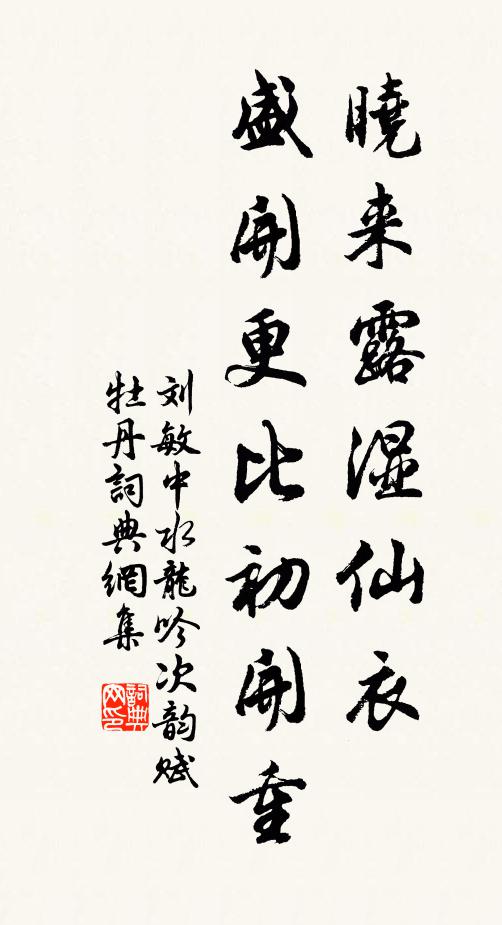 曉来露濕仙衣
盛開更比初開重
刘敏中水龍吟次韵赋
牡丹詞典網集
詞典网印